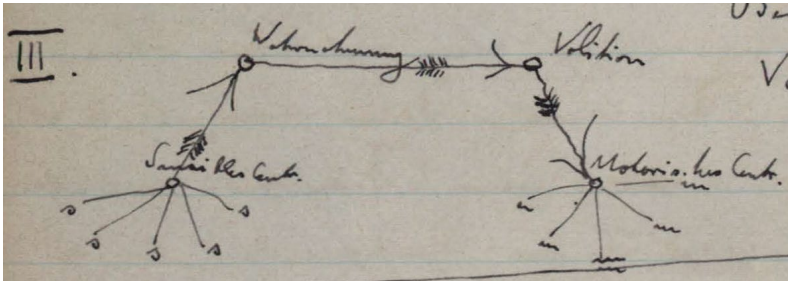 III.
Wahrnehmung
Volition
Sensibles Centr.
Motorisches Centr.
s s s s s
m m m m m